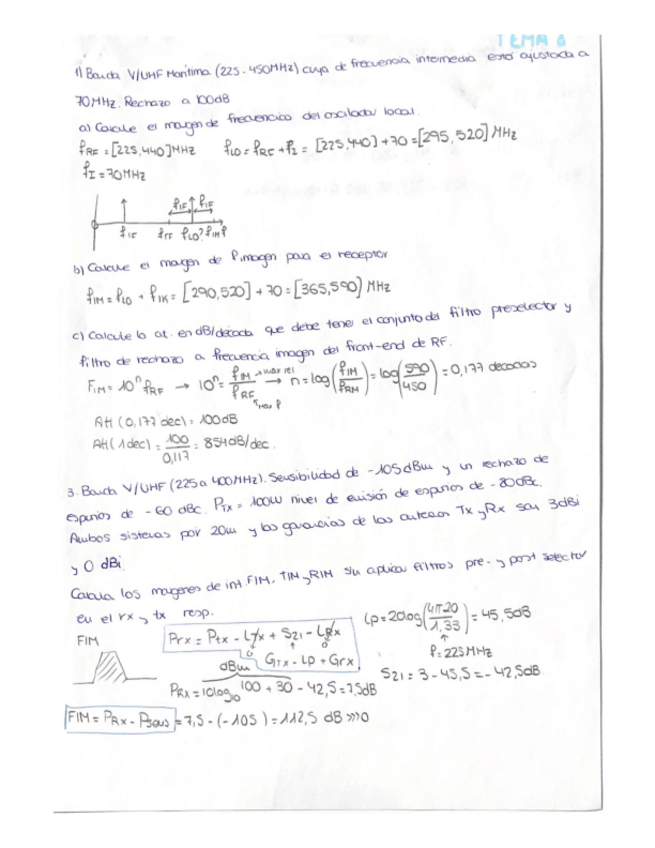 TEMA 6
1) Banda V/UHF Marítima (225-450MHz) cuya de frecuencia intermedia está ajustada a
70MHz. Rechazo a 100dB
a) Calcule el margen de frecuencias del oscilador local.
fRF = [225,440]MHz fLO = fRF + fI = [225,440] + 70 = [295,520] MHz
fI = 70MHz
fIF fIF
fIF fRF fLO? fIM f
b) Calcule el margen de f.imagen para el receptor
fIM = fLO + fIF = [290,520] + 70 = [365,590] MHz
c) Calcule la at. en dB/década que debe tener el conjunto del filtro preselector y
filtro de rechazo a frecuencia imagen del front-end de RF.
FIM = 10ⁿ fRF → 10ⁿ = fIM/fRF → n = log(fIM/fRM) = log(590/450) = 0,177 decadas
Att (0,177 dec) = 100dB
Att (1 dec) = 100/0,117 = 854dB/dec.
3. Banda V/UHF (225 a 400MHz). Sensibilidad de -105dBm y un rechazo de
espurios de -60 dBc. PTX = 100W nivel de emisión de espurios de -80dBc.
Ambos sistemas por 20m y las ganancias de las antenas Tx y Rx son 3dBi
y 0 dBi.
Calcula los margenes de int. FIM, TIM y RIM si aplicar filtros pre- y post selector
en el rx y tx resp.
FIM
PRX = PTX - LTX + S21 - LRX
0 0
GTX - LP + GRX
dBm
LP = 20log(4π20/1,33) = 45,5dB
f = 225MHz
S21 = 3 - 45,5 = -42,5dB
PRX = 10log10 100 + 30 - 42,5 = 7,5dB
FIM = PRX - Psens = 7,5 - (-105) = 112,5 dB >>> 0